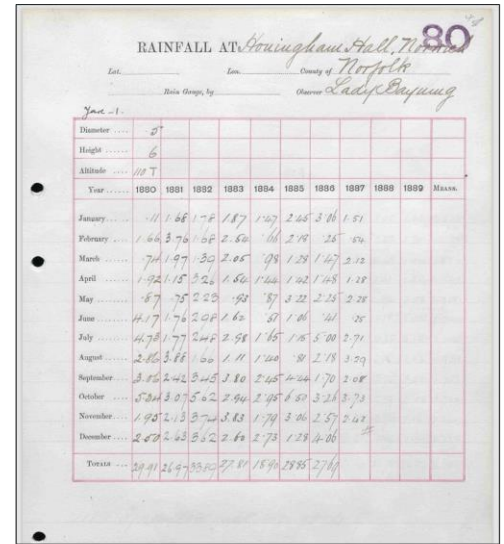 80
RAINFALL AT Honingham Hall, Norwich
Lat. Lon. County of Norfolk
Rain Gauge, by Observer Lady Bayning
Diameter .... 5
Height ...... 6
Altitude .... 110 T
Year ...... 1880 1881 1882 1883 1884 1885 1886 1887 1888 1889 MEANS.
January ...... .11 1.68 1.78 1.87 1.47 2.45 3.06 1.51
February .... 1.66 3.76 1.68 2.54 .66 2.19 .25 .54
March ...... .74 1.97 1.39 2.05 .98 1.28 1.47 2.12
April ...... 1.92 1.15 3.26 1.54 1.44 1.42 1.48 1.28
May ...... .87 .75 2.23 .93 .87 3.22 2.25 2.28
June ...... 4.17 1.76 2.98 1.62 .51 1.06 .41 .25
July ...... 4.73 1.77 2.48 2.98 1.65 1.15 5.00 2.71
August ...... 2.86 3.88 1.66 1.11 1.40 .81 2.18 3.29
September .... 3.06 2.42 3.45 3.80 2.45 4.44 1.70 2.08
October .... 5.34 3.07 5.62 2.94 2.95 6.50 3.26 3.73
November .... 1.95 2.13 3.74 3.83 1.79 3.06 2.57 2.42
December .... 2.50 2.63 3.62 2.60 2.73 1.28 4.06
TOTALS .... 29.91 26.97 33.89 27.81 18.90 28.85 27.69